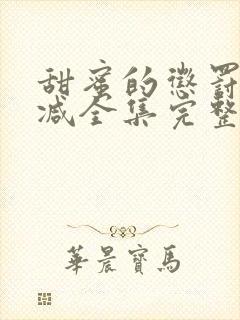 甜蜜的懲罰
减全集完整
華晨寶馬